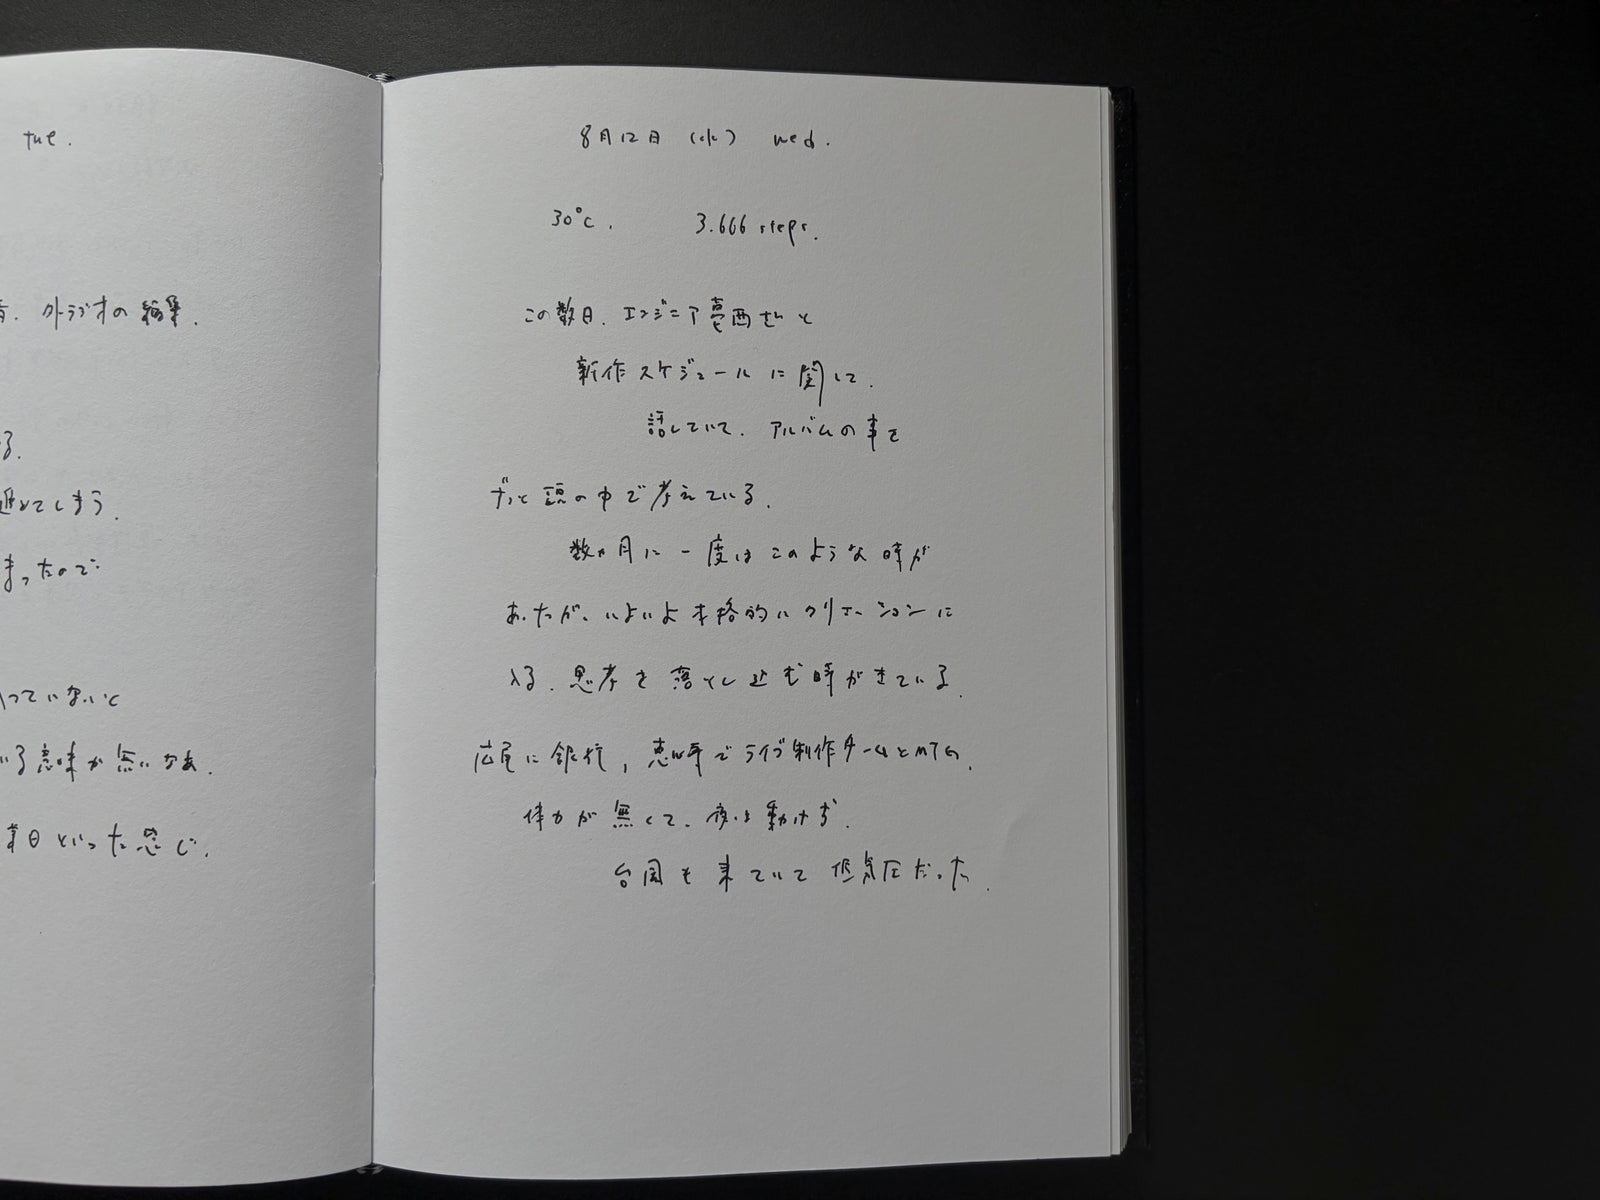 tue.
外ラジオの編集.
る.
過ぎてしまう.
まったので
っていないと
いる意味が無いなあ.
業日といった感じ.
8月12日 (水) wed.
30°C. 3.666 steps.
この数日. エンジニア葛西さんと
新作スケジュールに関して.
話していて. アルバムの事を
ずっと頭の中で考えている.
数ヶ月に一度はこのような時が
あったが、いよいよ本格的にクリエーションに
入る. 思考を落とし込む時がきている.
広尾に銀行, 恵比寿でライブ制作チームとMTG.
体力が無くて. 夜は動けず.
台風も来ていて低気圧だった.